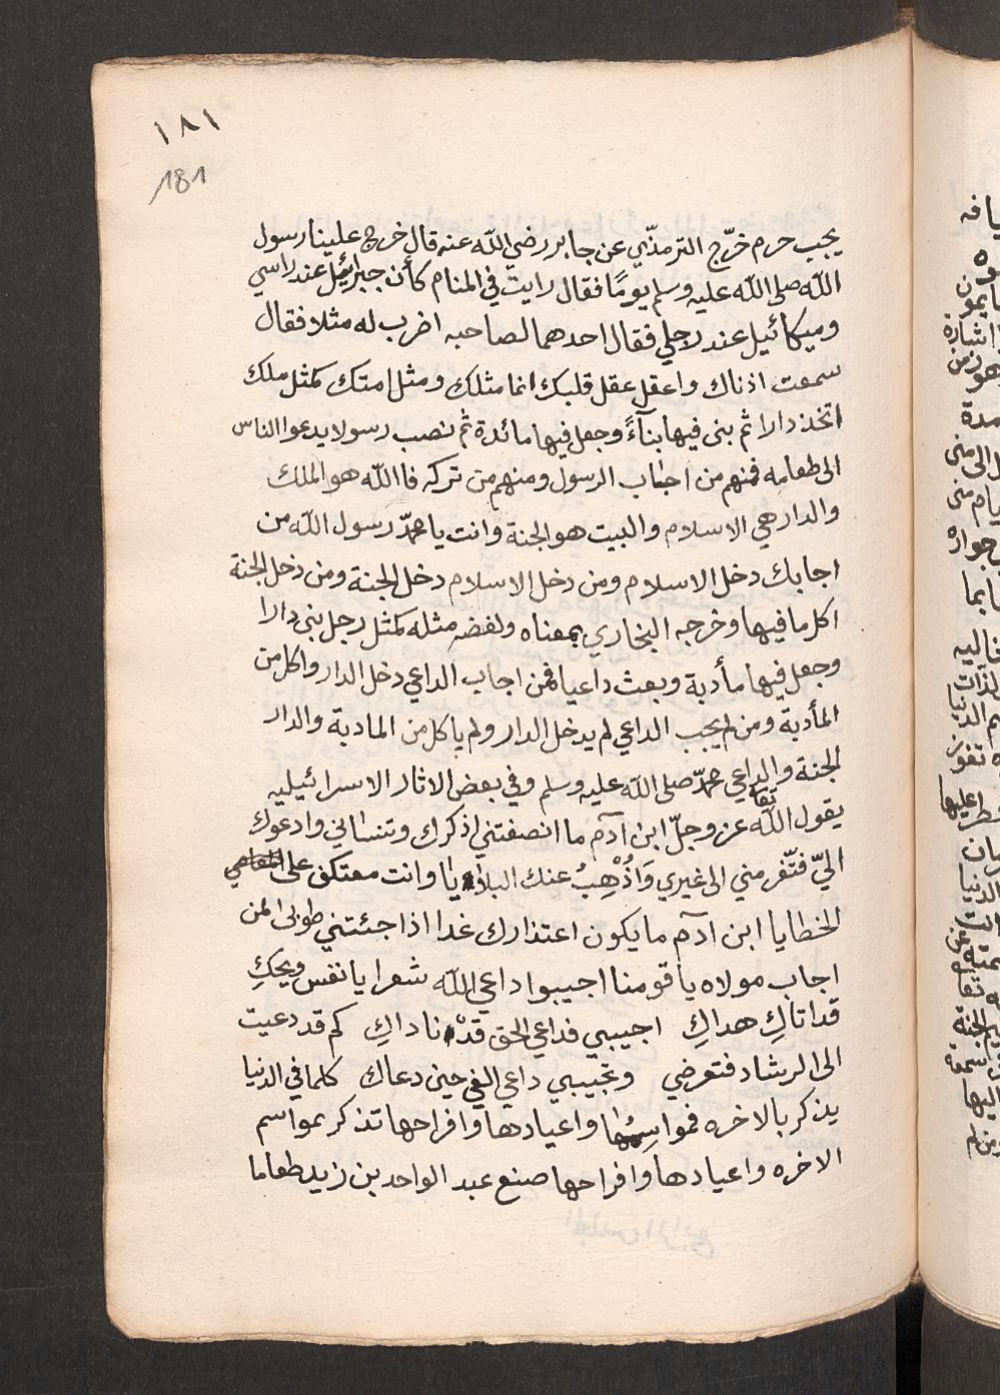 ١٨١
181
يجب حرم خرّج الترمذّي عن جابر رضي الله عنه قال خرج علينا رسول
الله صلى الله عليه وسلم يومًا فقال رايت في المنام كأن جبرائيل عند راسي
وميكائيل عند رجلي فقال احدهما لصاحبه اضرب له مثلا فقال
سمعت اذناك واعقل عقل قلبك انما مثلك ومثل امتك كمثل ملك
اتخذ دارا ثم بنى فيها بنآءً وجعل فيها مائدة ثم نصب رسولا يدعوا الناس
الى طعامه فمنهم من اجاب الرسول ومنهم من تركه فالله هو الملك
والدار هي الاسلام والبيت هو الجنة وانت يا محمّد رسول الله من
اجابك دخل الاسلام ومن دخل الاسلام دخل الجنة ومن دخل الجنة
اكل ما فيها وخرجه البخاري بمعناه ولفضه مثله كمثل رجل بنى دارا
وجعل فيها مأدبة وبعث داعيا فمن اجاب الداعي دخل الدار واكل من
المأدبة ومن لم يجب الداعي لم يدخل الدار ولم ياكل من المادبة والدار
الجنة والداعي محمّد صلى الله عليه وسلم وفي بعض الاثار الاسرائيليه
يقول الله تعا عز وجلّ ابن آدم ما انصفتني اذكرك وتنساني وادعوك
اليّ فتّفر مني الى غيري وَاُذْهِبُ عنك البلايا وانت معتكف على
الخطايا ابن آدم ما يكون اعتذارك غدا اذا جئتني طوبى لمن
اجاب مولاه يا قومنا اجيبوا داعي الله شعرا يا نفس ويحكِ
قد اتاكِ هداكِ اجيبي فداعي الحق قدْ ناداكِ كم قد دعيت
الى الرشاد فتعرضي وتجيبي داعي الغي حين دعاك كلما في الدنيا
يذكر بالاخره فمواسمها واعيادها وافراحها تذكر بمواسم
الاخره واعيادها وافراحها صنع عبد الواحد بن زيد طعاما